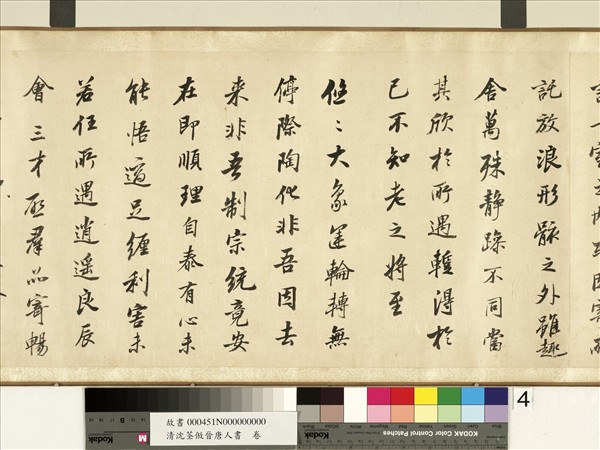 託放浪形骸之外雖趣
舍萬殊靜躁不同當
其欣於所遇蹔得於
已不知老之將至
悠〻大象運輪轉無
停際陶化非吾因去
来非吾制宗統竟安
在即順理自泰有心未
能悟適足纏利害未
若任所遇逍遥良辰
會三才啓羣品寄暢
4
故書 000451N000000000
清沈荃倣晉唐人書 卷
Kodak
M
B
KODAK Color Control Patches
Kodak